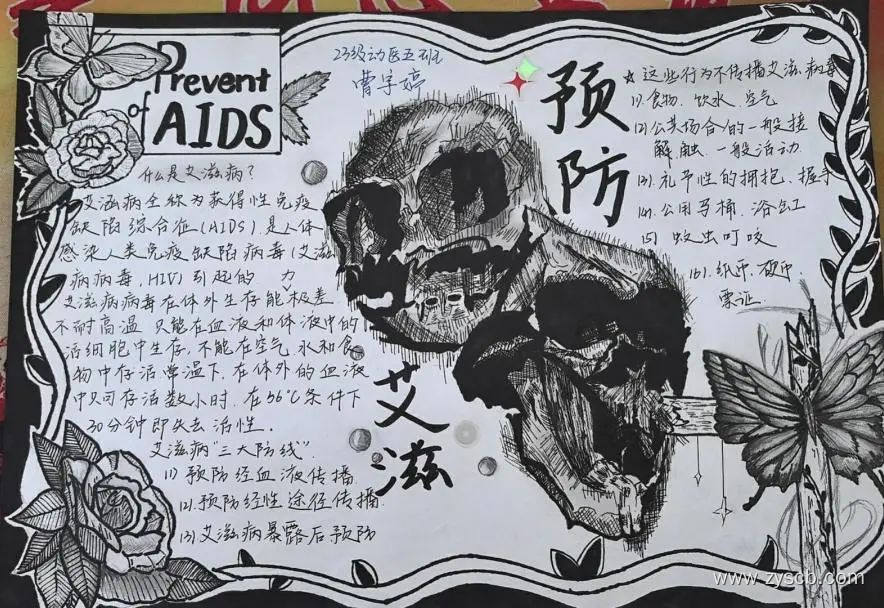 Prevent
of AIDS
23级动医五班
曹字婷
预防
艾滋
什么是艾滋病?
艾滋病全称为获得性免疫
缺陷综合征(AIDS),是人体
感染人类免疫缺陷病毒(艾滋
病病毒,HIV)引起的
艾滋病病毒在体外生存能力极差
不耐高温 只能在血液和体液中的
活细胞中生存,不能在空气、水和食
物中存活常温下,在体外的血液
中只可存活数小时,在56℃条件下
30分钟即失去活性.
艾滋病"三大防线".
(1)预防经血液传播
(2).预防经性途径传播.
(3)艾滋病暴露后预防
☆这些行为不传播艾滋病毒
(1).食物、饮水、空气
(2)公共场合的一般接
解触.一般活动.
(3).礼节性的拥抱、握手
(4).公用马桶、浴缸
(5) 蚊虫叮咬
(6).纸币、硬币.
票证.
www.zyscb.com